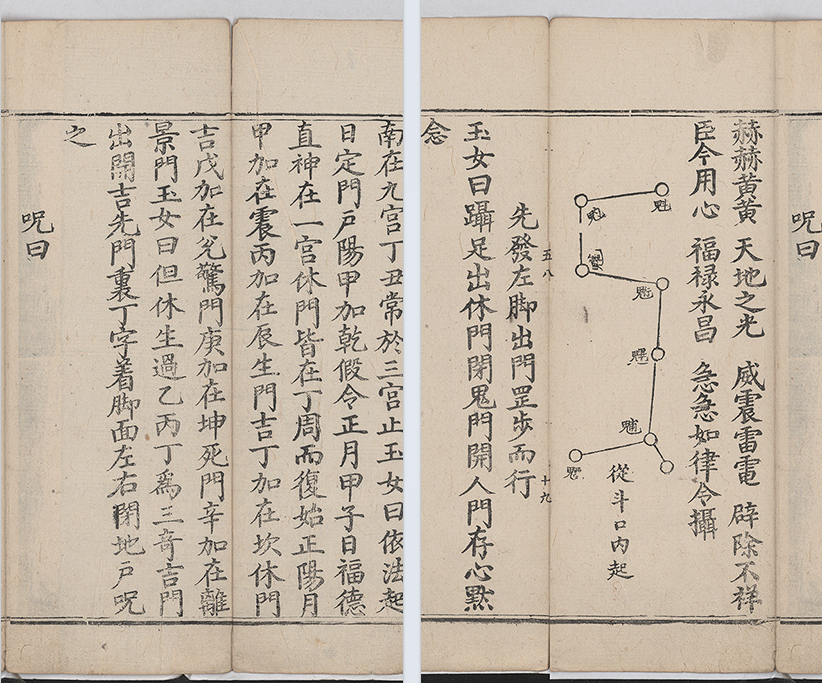 南在九宫丁丑常於三宫止玉女曰依法起
日定門戸陽甲加乾假令正月甲子日福德
直神在一宫休門皆在丁周而復始正陽月
甲加在震丙加在辰生門吉丁加在坎休門
吉戊加在兊驚門庚加在坤死門辛加在離
景門玉女曰但休生過乙丙丁為三竒吉門
出開吉先門裏丁字着脚面左右閉地戸呪
之
呪曰
呪曰
赫赫黄黄 天地之光 威震雷電 辟除不祥
臣今用心 福禄永昌 急急如律令攝
從斗口内起
五八
十九
先發左脚出門罡歩而行
玉女曰躡足出休門閉鬼門開人門存心黙
念